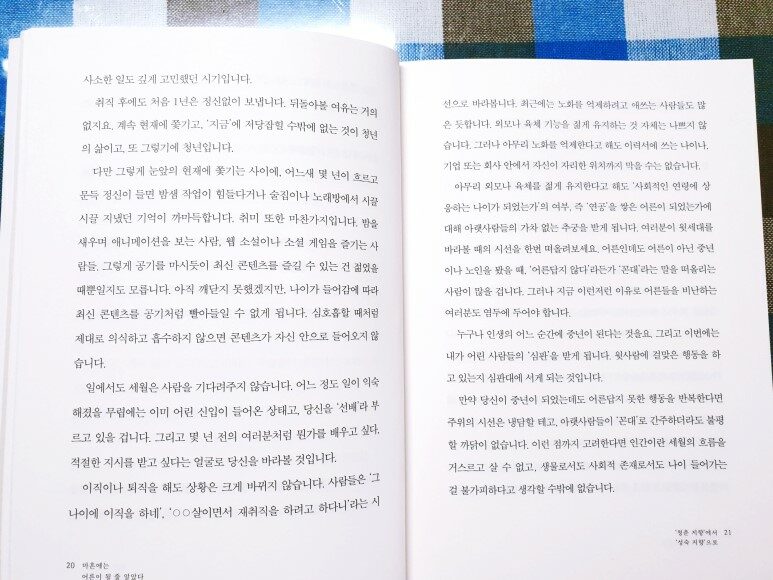 사소한 일도 깊게 고민했던 시기입니다.
취직 후에도 처음 1년은 정신없이 보냅니다. 뒤돌아볼 여유는 거의
없지요. 계속 현재에 쫓기고, '지금'에 지당잡힐 수밖에 없는 것이 청년
의 삶이고, 또 그렇기에 청년입니다.
다만 그렇게 눈앞의 현재에 쫓기는 사이에, 어느새 몇 년이 흐르고
문득 정신이 들면 밤샘 작업이 힘들다거나 술집이나 노래방에서 시끌
시끌 지냈던 기억이 까마득합니다. 취미 또한 마찬가지입니다. 밤을
새우며 애니메이션을 보는 사람, 웹 소설이나 소셜 게임을 즐기는 사
람들. 그렇게 공기를 마시듯이 최신 콘텐츠를 즐길 수 있는 건 젊었을
때뿐일지도 모릅니다. 아직 깨닫지 못했겠지만, 나이가 들어감에 따라
최신 콘텐츠를 공기처럼 빨아들일 수 없게 됩니다. 심호흡할 때처럼
제대로 의식하고 흡수하지 않으면 콘텐츠가 자신 안으로 들어오지 않
습니다.
일에서도 세월은 사람을 기다려주지 않습니다. 어느 정도 일이 익숙
해졌을 무렵에는 이미 어린 신입이 들어온 상태고, 당신을 '선배'라 부
르고 있을 겁니다. 그리고 몇 년 전의 여러분처럼 뭔가를 배우고 싶다,
적절한 지시를 받고 싶다는 얼굴로 당신을 바라볼 것입니다.
이직이나 퇴직을 해도 상황은 크게 바뀌지 않습니다. 사람들은 '그
나이에 이직을 하네', '○○살이면서 재취직을 하려고 하다니'라는 시
20 마흔에는
어른이 될 줄 알았다
선으로 바라봅니다. 최근에는 노화를 억제하려고 애쓰는 사람들도 많
은 듯합니다. 외모나 육체 기능을 젊게 유지하는 것 자체는 나쁘지 않
습니다. 그러나 아무리 노화를 억제한다고 해도 이력서에 쓰는 나이나,
기업 또는 회사 안에서 자신이 자리한 위치까지 막을 수는 없습니다.
아무리 외모나 육체를 젊게 유지한다고 해도 '사회적인 연령에 상
응하는 나이가 되었는가'의 여부, 즉 '연공'을 쌓은 어른이 되었는가에
대해 아랫사람들의 가차 없는 추궁을 받게 됩니다. 여러분이 윗세대를
바라볼 때의 시선을 한번 떠올려보세요. 어른인데도 어른이 아닌 중년
이나 노인을 봤을 때, '어른답지 않다'라든가 '꼰대'라는 말을 떠올리는
사람이 많을 겁니다. 그러나 지금 이런저런 이유로 어른들을 비난하는
여러분도 염두에 두어야 합니다.
누구나 인생의 어느 순간에 중년이 된다는 것을요. 그리고 이번에는
내가 어린 사람들의 '심판'을 받게 됩니다. 윗사람에 걸맞은 행동을 하
고 있는지 심판대에 서게 되는 것입니다.
만약 당신이 중년이 되었는데도 어른답지 못한 행동을 반복한다면
주위의 시선은 냉담할 테고, 아랫사람들이 '꼰대'로 간주하더라도 불평
할 까닭이 없습니다. 이런 점까지 고려한다면 인간이란 세월의 흐름을
거스르고 살 수 없고, 생물로서도 사회적 존재로서도 나이 들어가는
걸 불가피하다고 생각할 수밖에 없습니다.
'청춘 지향'에서 21
'성숙 지향'으로